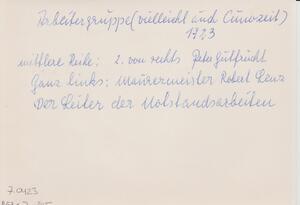 Arbeitergruppe (vielleicht aus Cunozeit)
1923
mittlere Reihe: 2. von rechts Peter Gutfrucht
Ganz links: Maurermeister Robert Lenz
Der Leiter der Notstandsarbeiten
7.0423